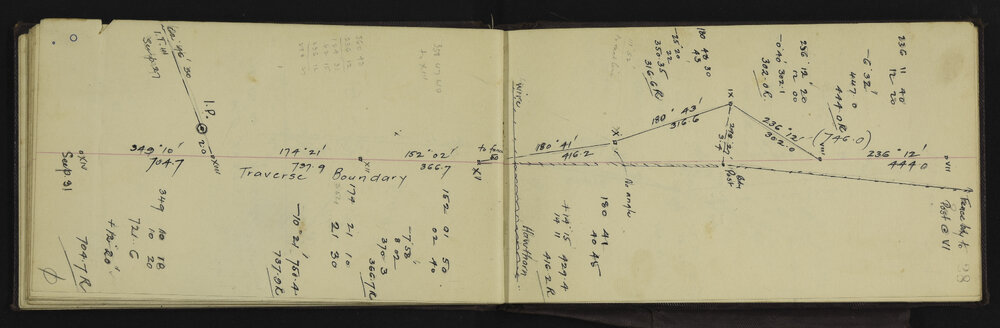 I.T.M
Sec p 29
I.P.
20
XIII
XIV
See p 31
349° 10'
704.7
349 10 18
10 20
721.6
+12° 20'
704.7 R
174° 21'
737.9
XII
Traverse Boundary
174 21 10
21 30
-10° 21' 750.4
737.9 R
152° 02'
366.7
XI
152 01 50
02 40
-7° 58'
8 02
370.3
366.7 R
Wire
Hawthorn
180° 41'
416.2
X
No angle
180 41
40 45
+14° 15 429.4
14 11
416.2 R
180° 43'
316.6
180 43 30
43
-25° 20'
22
350.35
316.6 R
IX
Bdy
Post
236° 12'
302.0
236 12' 20
12 00
-0° 40' 302.1
302.0 R
VIII
(746.0)
236° 12'
444.0
236 11 40
12 20
-6° 32'
447.0
444.0 R
VII
Fence bdy to
Post @ VI
28